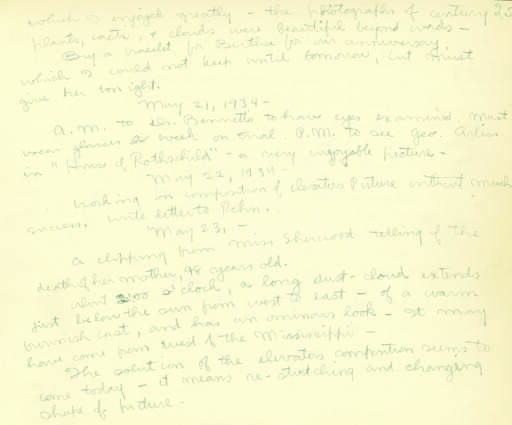 which I enjoyed greatly - the photographs of century 23
plants, cacti, & clouds were beautiful beyond words -
Buy a bracelet for Bertha for our anniversary,
which I could not keep until tomorrow, but must
give her tonight.
May 21, 1934 -
A.M. to Dr. Bennett to have eyes examined. Must
wear glasses a week on trial. P.M. to see Geo. Arliss
in "House of Rothschild" - a very enjoyable picture -
May 22, 1934 -
Working on composition of Elevators Picture without much
success. Write letter to Rehn.
May 23, -
A clipping from Miss Sherwood telling of the
death of her mother, 98 years old.
About 5:00 o'clock, a long dust-cloud extends
just below the sun from west to east - of a warm
burnish cast, and has an ominous look - It may
have come from west of the Mississippi -
The solution of the elevators composition seems to
come today - it means re-stretching and changing
shape of picture -